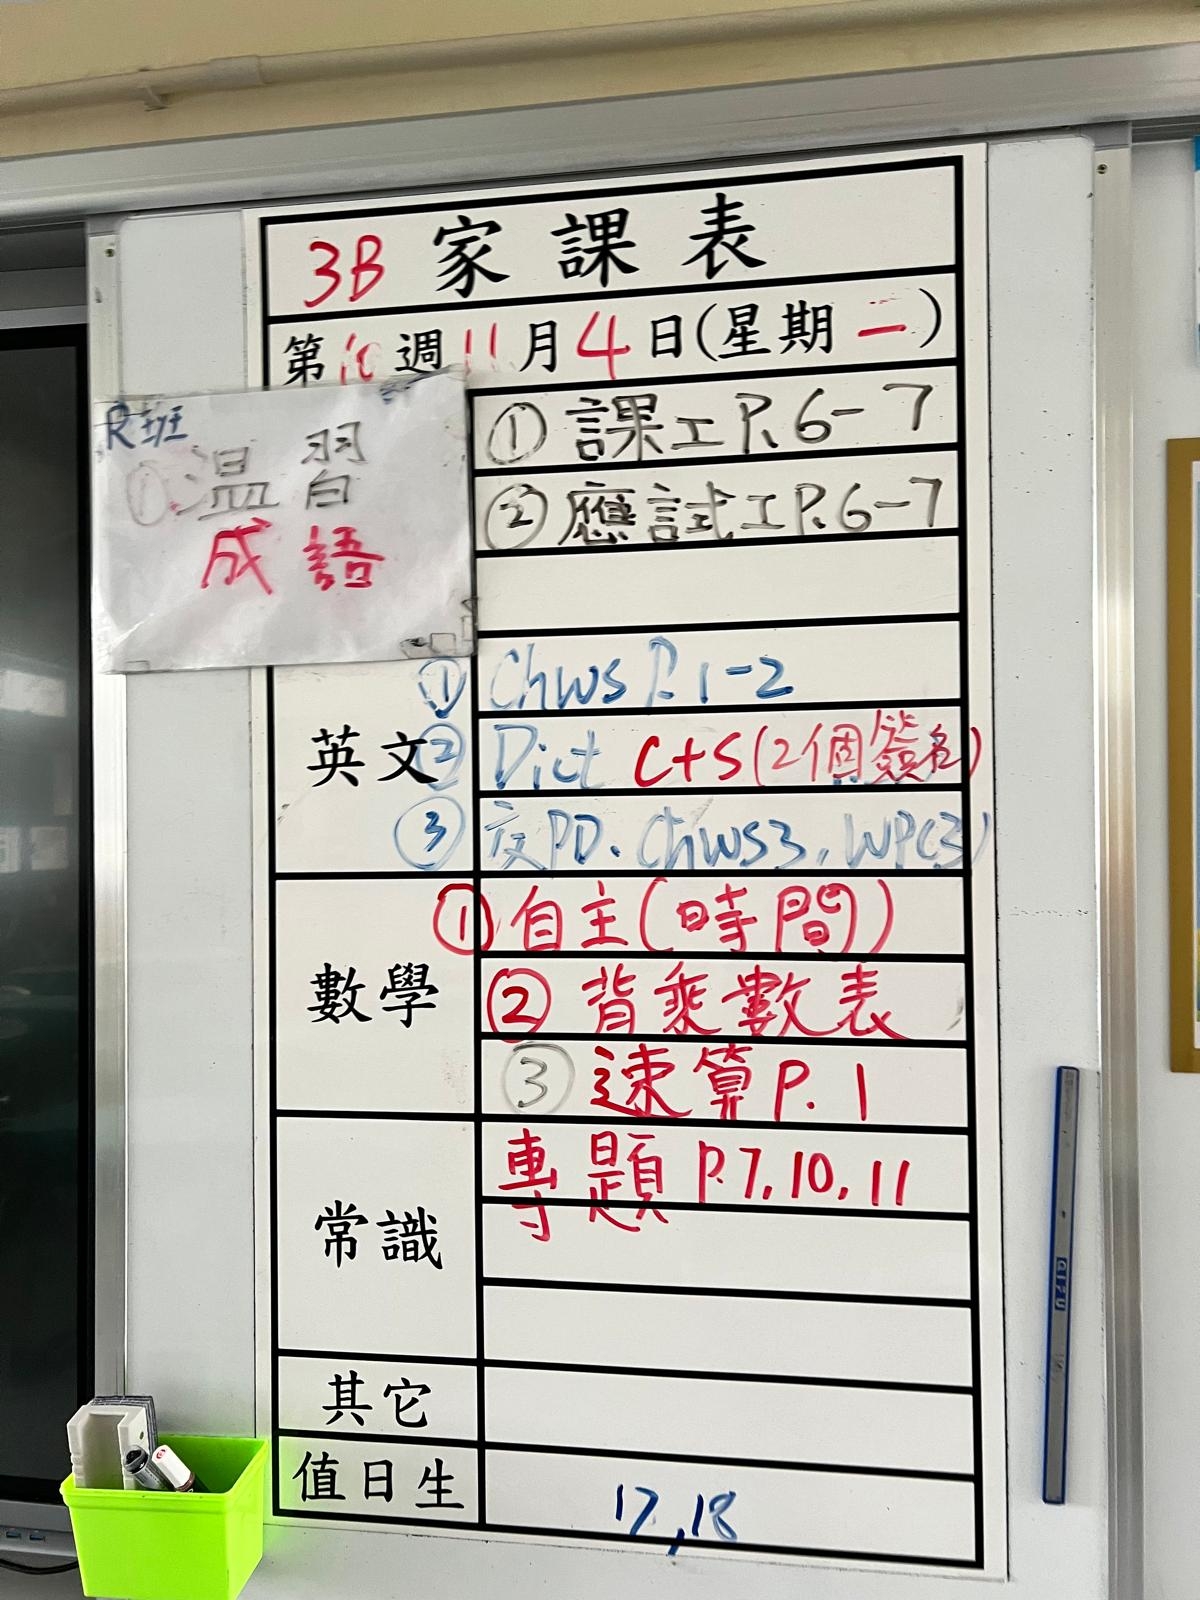 3B 家課表
第10週11月4日(星期二)
R班
①溫習
成語
①課工P.6-7
②應試工P.6-7
英文
① Chws P.1-2
② Dict C+S(2個簽名)
③ 交PD. ChWS3, WP(3)
數學
①自主(時間)
②背乘數表
③速算P.1
常識
專題 P.7,10,11
其它
值日生
17,18